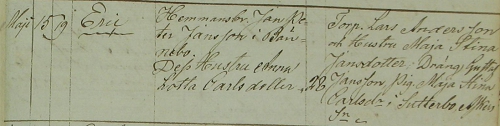 Maji 15 19 Eric Hemmansbr. Jan Pe- Torp. Lars Andersson
ter Jansson i och Hustru Maja Stina
nebo. Jansdotter. Dräng Gustaf
Dess Hustru Anna Jansson, Pig. Maja Stina
Lotta Carlsdotter. 28 Carlsdr i Sätterbo,
Sn